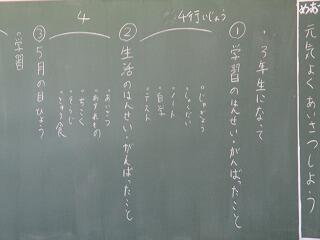 めあ
元気よくあいさつしよう
・3年生になって
4行いじょう
①学習のはんせい・がんばったこと
・じゅぎょう
・しゅくだい
・ノート
・自学
・テスト
4
②生活のはんせい・がんばったこと
・あいさつ
・あずれもの
・ちこく
・そうじ
・きゅう食
③5月の目ひょう
・学習